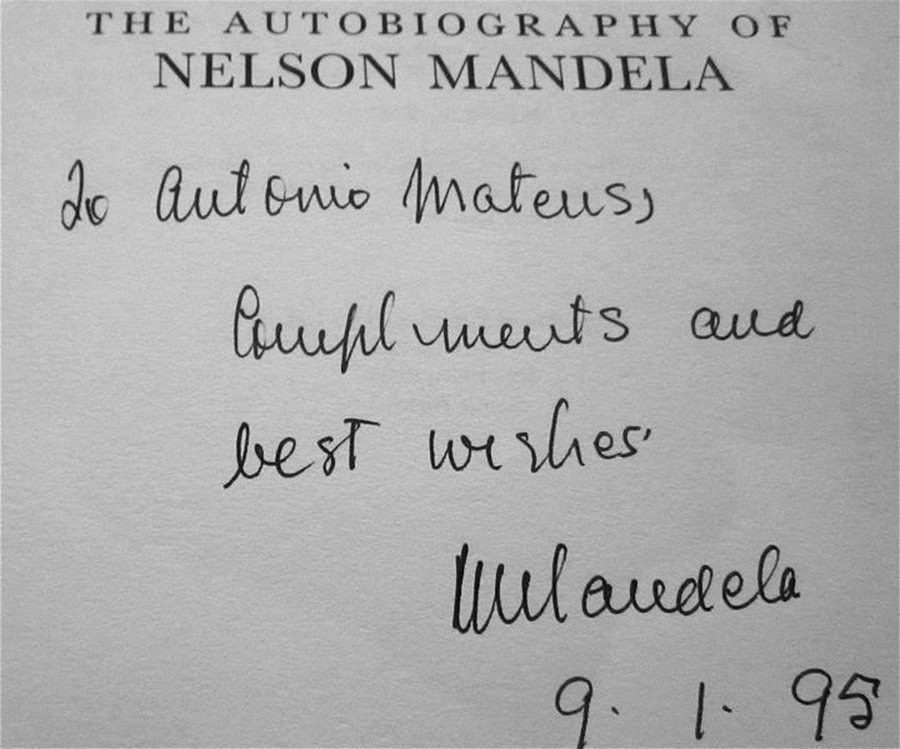 THE AUTOBIOGRAPHY OF
NELSON MANDELA
To Antonio Mateus,
Compliments and
best wishes
Mandela
9. 1. 95